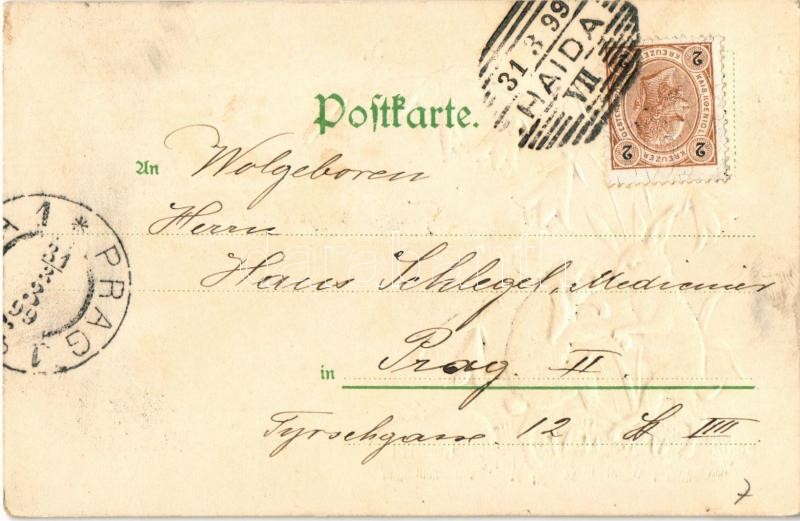 31 3 99
HAIDA
VII
2 KREUZER 2
KREUZER
2 2
Postkarte.
An Wolgeboren
Herrn
Hans Schlegel, Mediciner
in Prag. II.
Tyrschgasse 12 St III
* PRAG 1
7